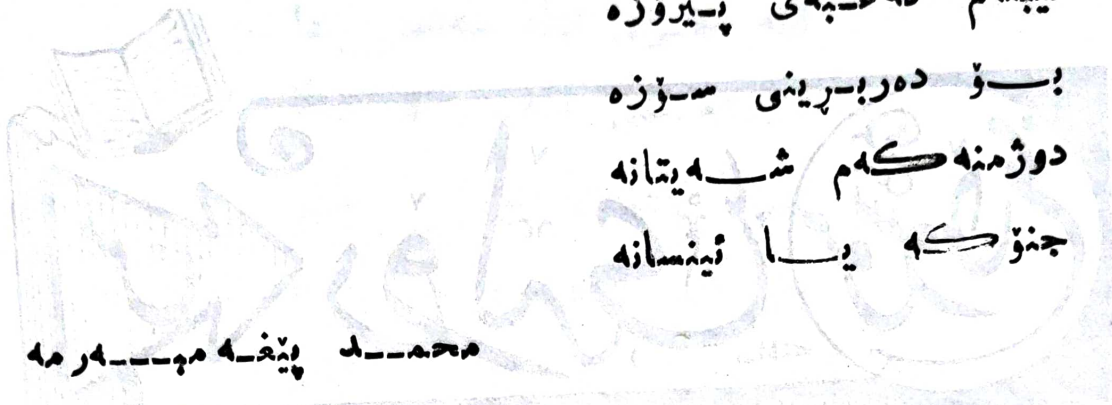 پیرۆزە
بۆ دەربڕینی سۆزە
دوژمنەکەم شەیتانە
جنۆکە یا ئینسانە
محمد پێغەمبەرمە